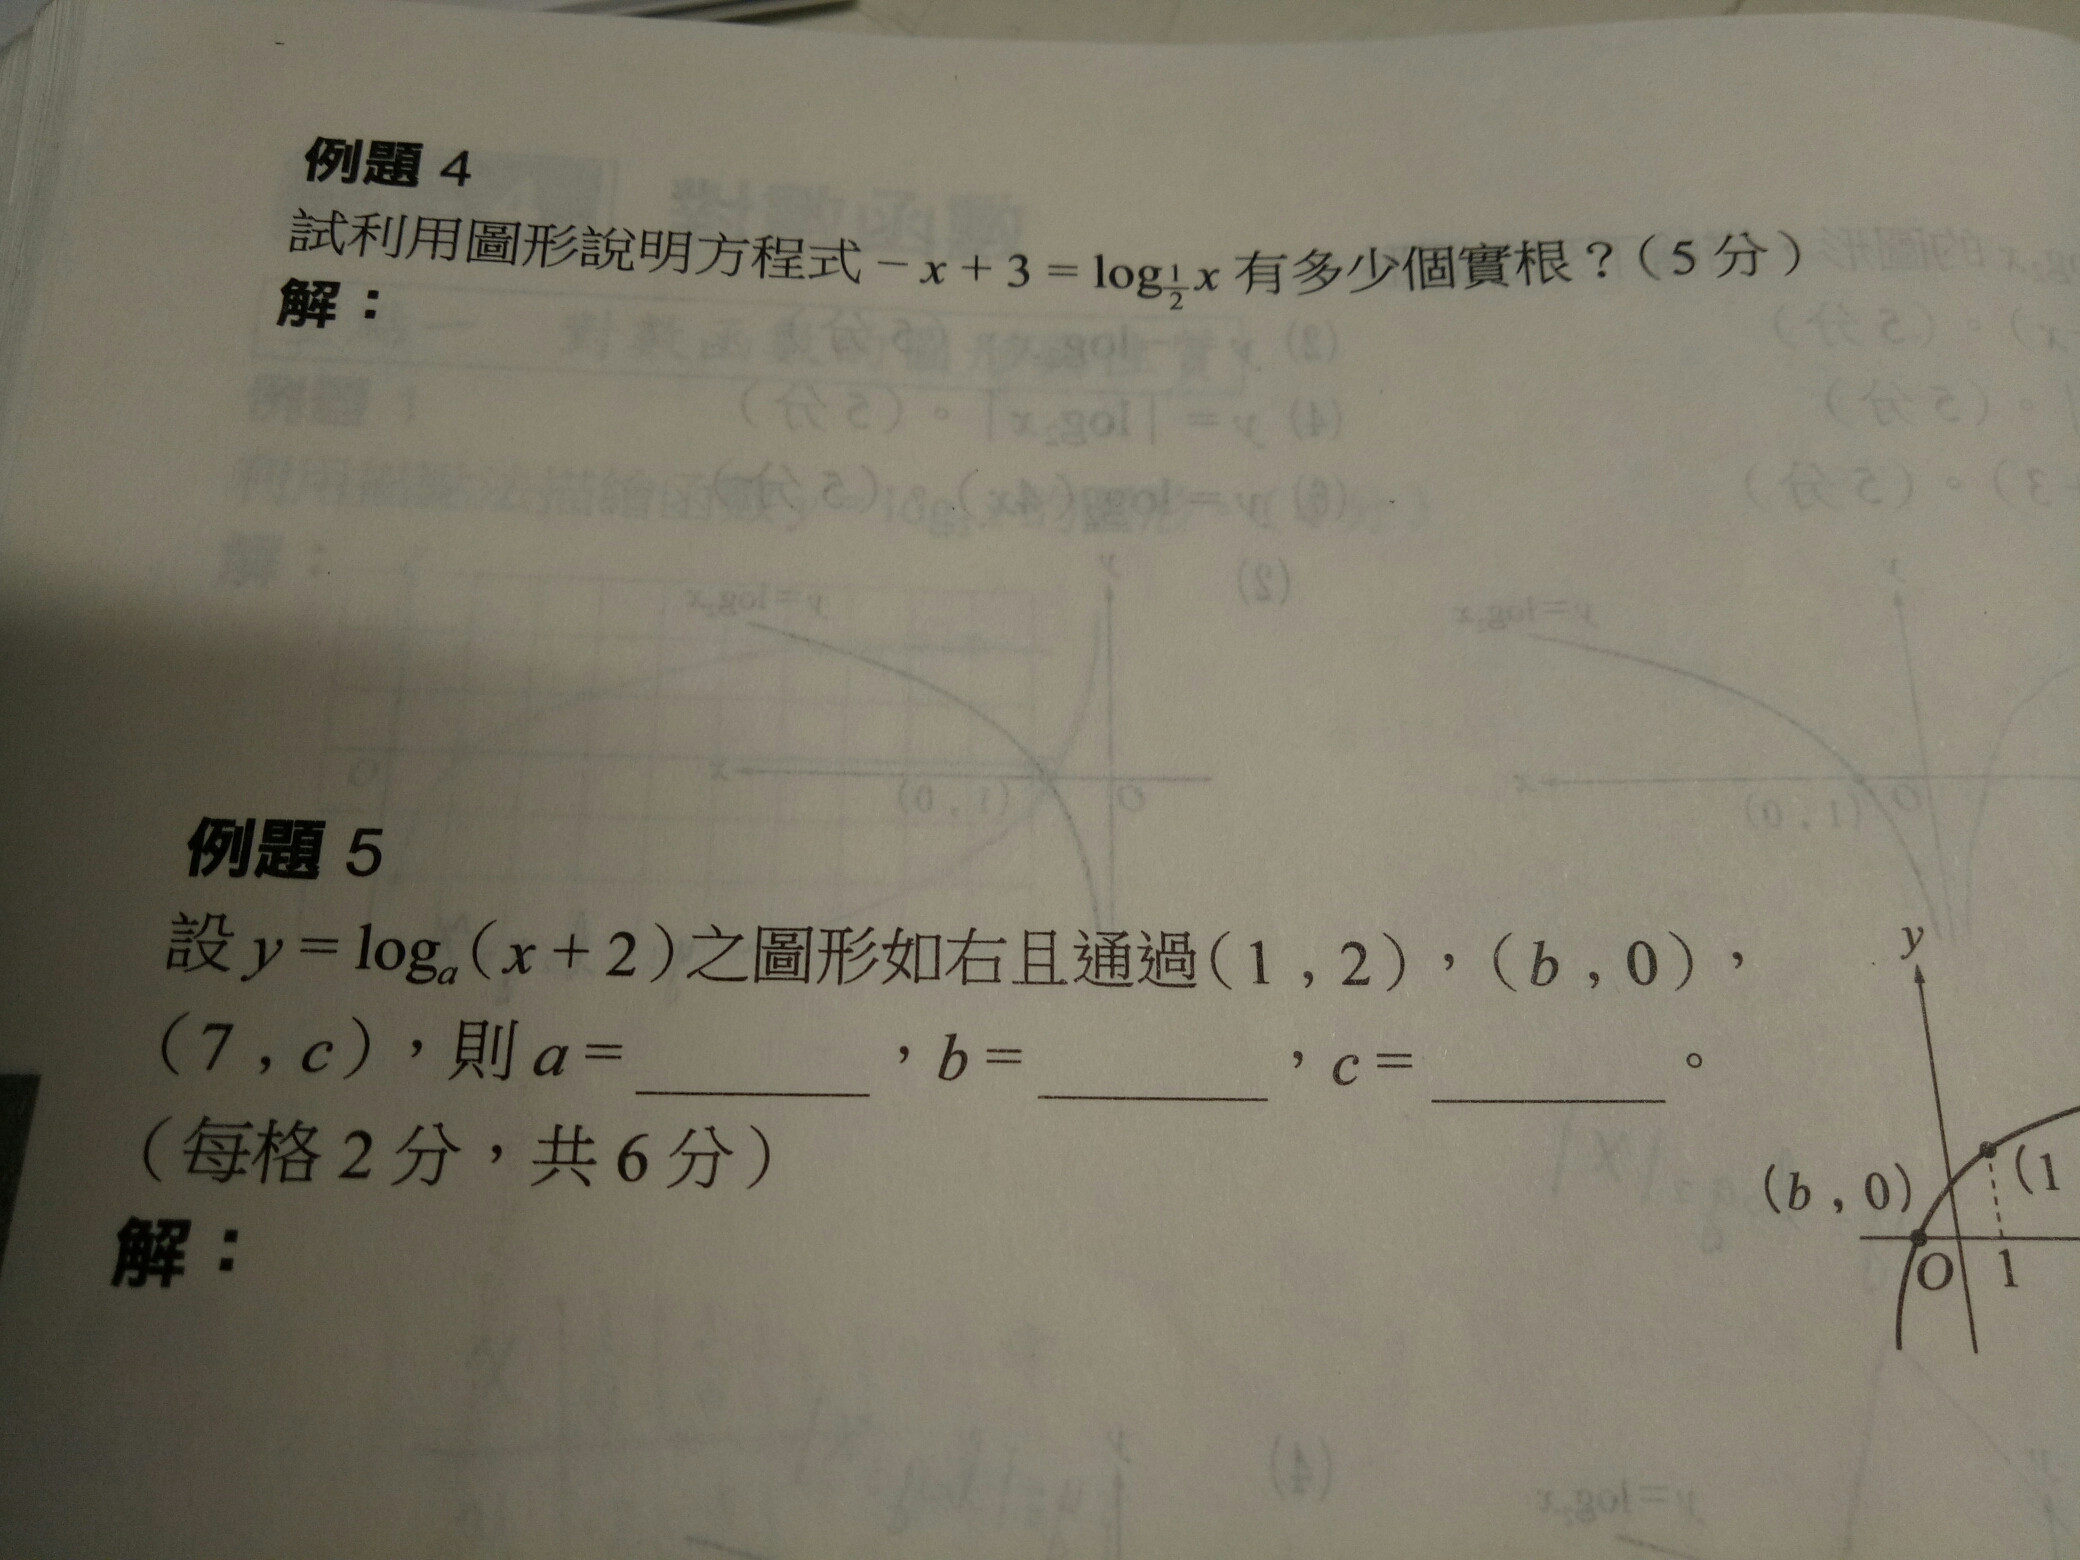 例題 4
試利用圖形說明方程式 − x + 3 = log½ x 有多少個實根？（5 分）
解：
例題 5
設 y = logₐ（x + 2）之圖形如右且通過（1 , 2），（b , 0），
（7 , c），則 a = ______ ，b = ______ ，c = ______ 。
（每格 2 分，共 6 分）
解：
y
(b , 0)
(1
O
1